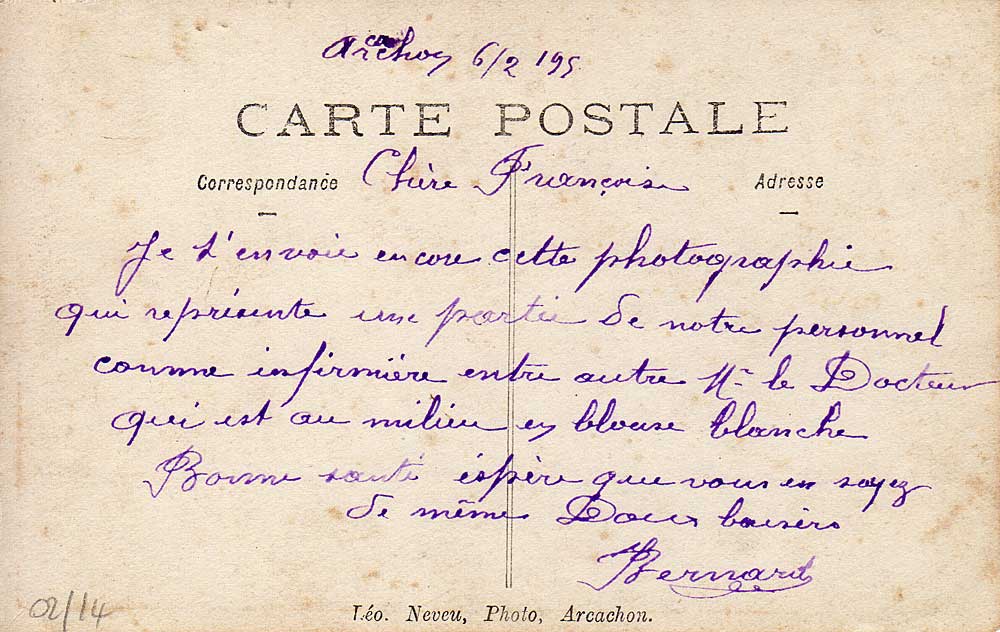 Arcachon 6/2 195
CARTE POSTALE
Correspondance Chère Françoise Adresse
Je t'envoie encore cette photographie
qui représente une partie de notre personnel
comme infirmière entre autre Mr le Docteur
qui est au milieu en blouse blanche
Bonne santé éspère que vous en soyez
de même Doux baisers
Bernard
Léo. Neveu, Photo, Arcachon.
02/14